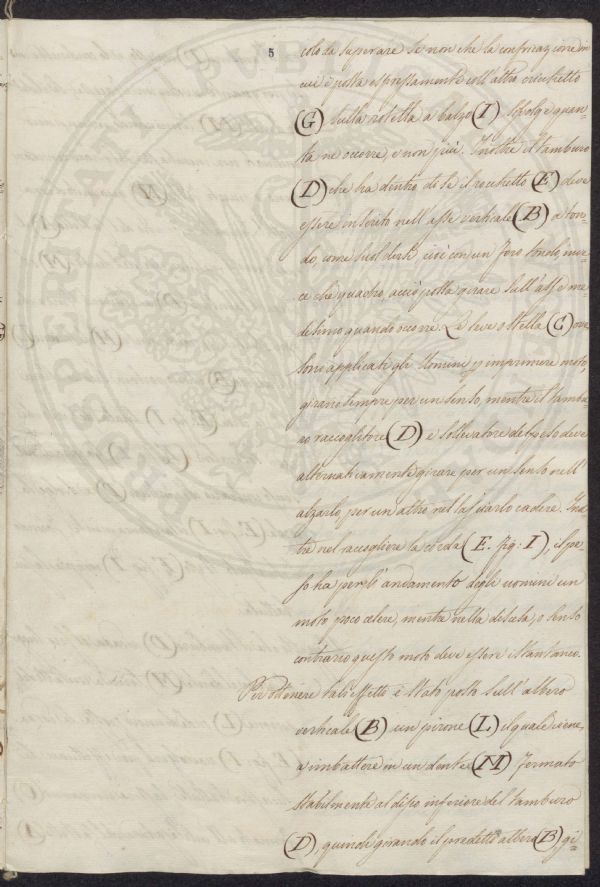 5
colo da superare se non che la confricazione in
cui è posta espressamente coll'altro crocchetto
(G) sulla rotetta a balzo (I) svolge quan-
ta ne occorre, e non più. Inoltre il tamburo
(D) che ha dentro di se il rocchetto (E) deve
essere inserito nell'asse verticale (B) a ton-
do, come suol dirsi cioè con un foro tondo, in ve-
ce che quadro, acciò possa girare sull'asse me-
desimo quando occorre. Le leve o stella (C) ove
sono applicati gli Uomini p imprimere moto,
girano sempre per un senso, mentre il tambu-
ro raccoglitore (D) e sollevatore del peso deve
alternativamente girare per un senso nell'
alzarlo, per un altro nel lasciarlo cadere. Inol-
tre nel raccogliere la corda (E. fig. I), il pe-
so ha per l'andamento degli uomini un
moto poco celere, mentre nella discesa, o senso
contrario questo moto deve essere istantaneo.
Per ottenere tali effetti è stato posto sull'albero
verticale (B) un pirone (L) il quale viene,
a imbattere in un dente (M) fermato
stabilmente al disco inferiore del tamburo
(D), quindi girando il predetto albero (B) gi-